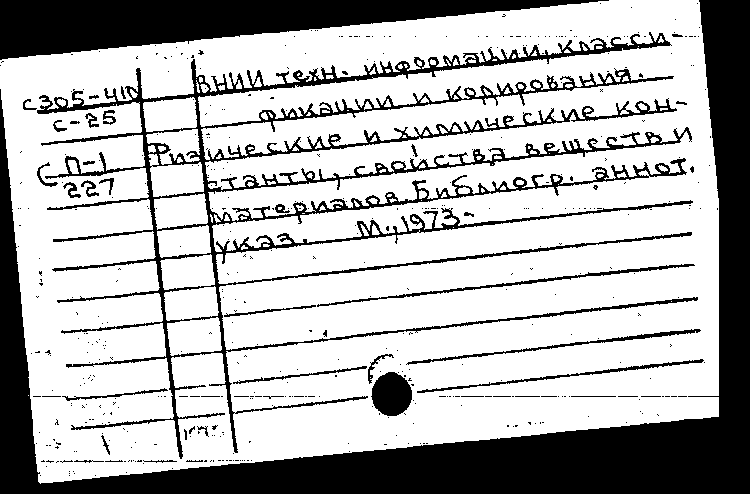 с305-410 ВНИИ техн. информации, класси-
с-25 фикации и кодирования.
П-1 Физические и химические кон-
227 станты, свойства веществ и
материалов. Библиогр. аннот.
указ. М., 1973-